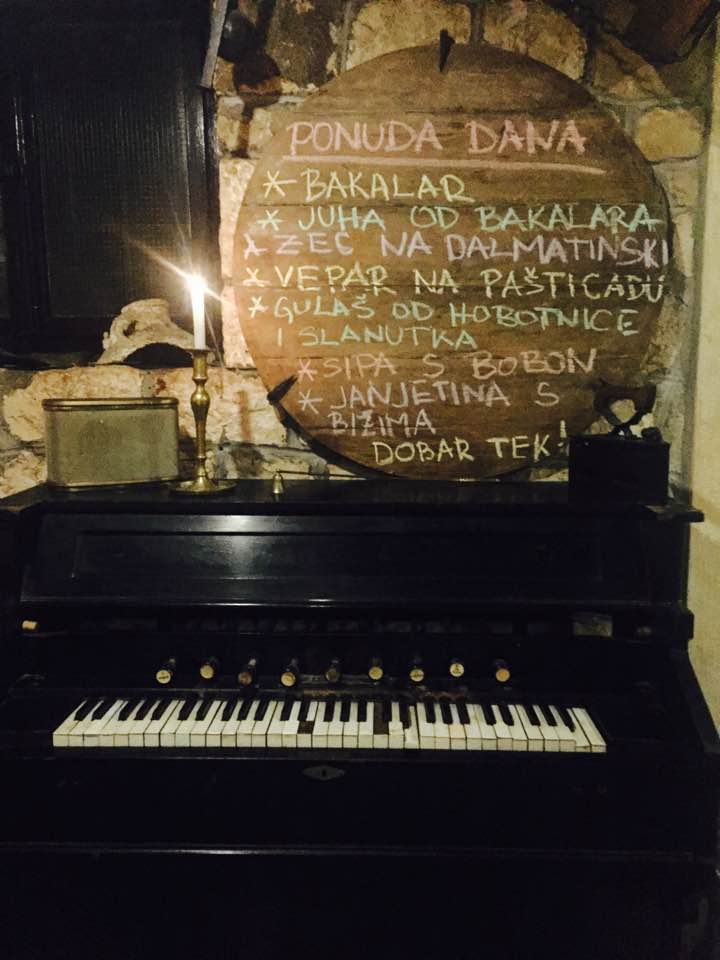 PONUDA DANA
* BAKALAR
* JUHA OD BAKALARA
* ZEC NA DALMATINSKI
* VEPAR NA PAŠTICADU
* GULAŠ OD HOBOTNICE
I SLANUTKA
* SIPA S BOBON
* JANJETINA S
BIŽIMA
DOBAR TEK!